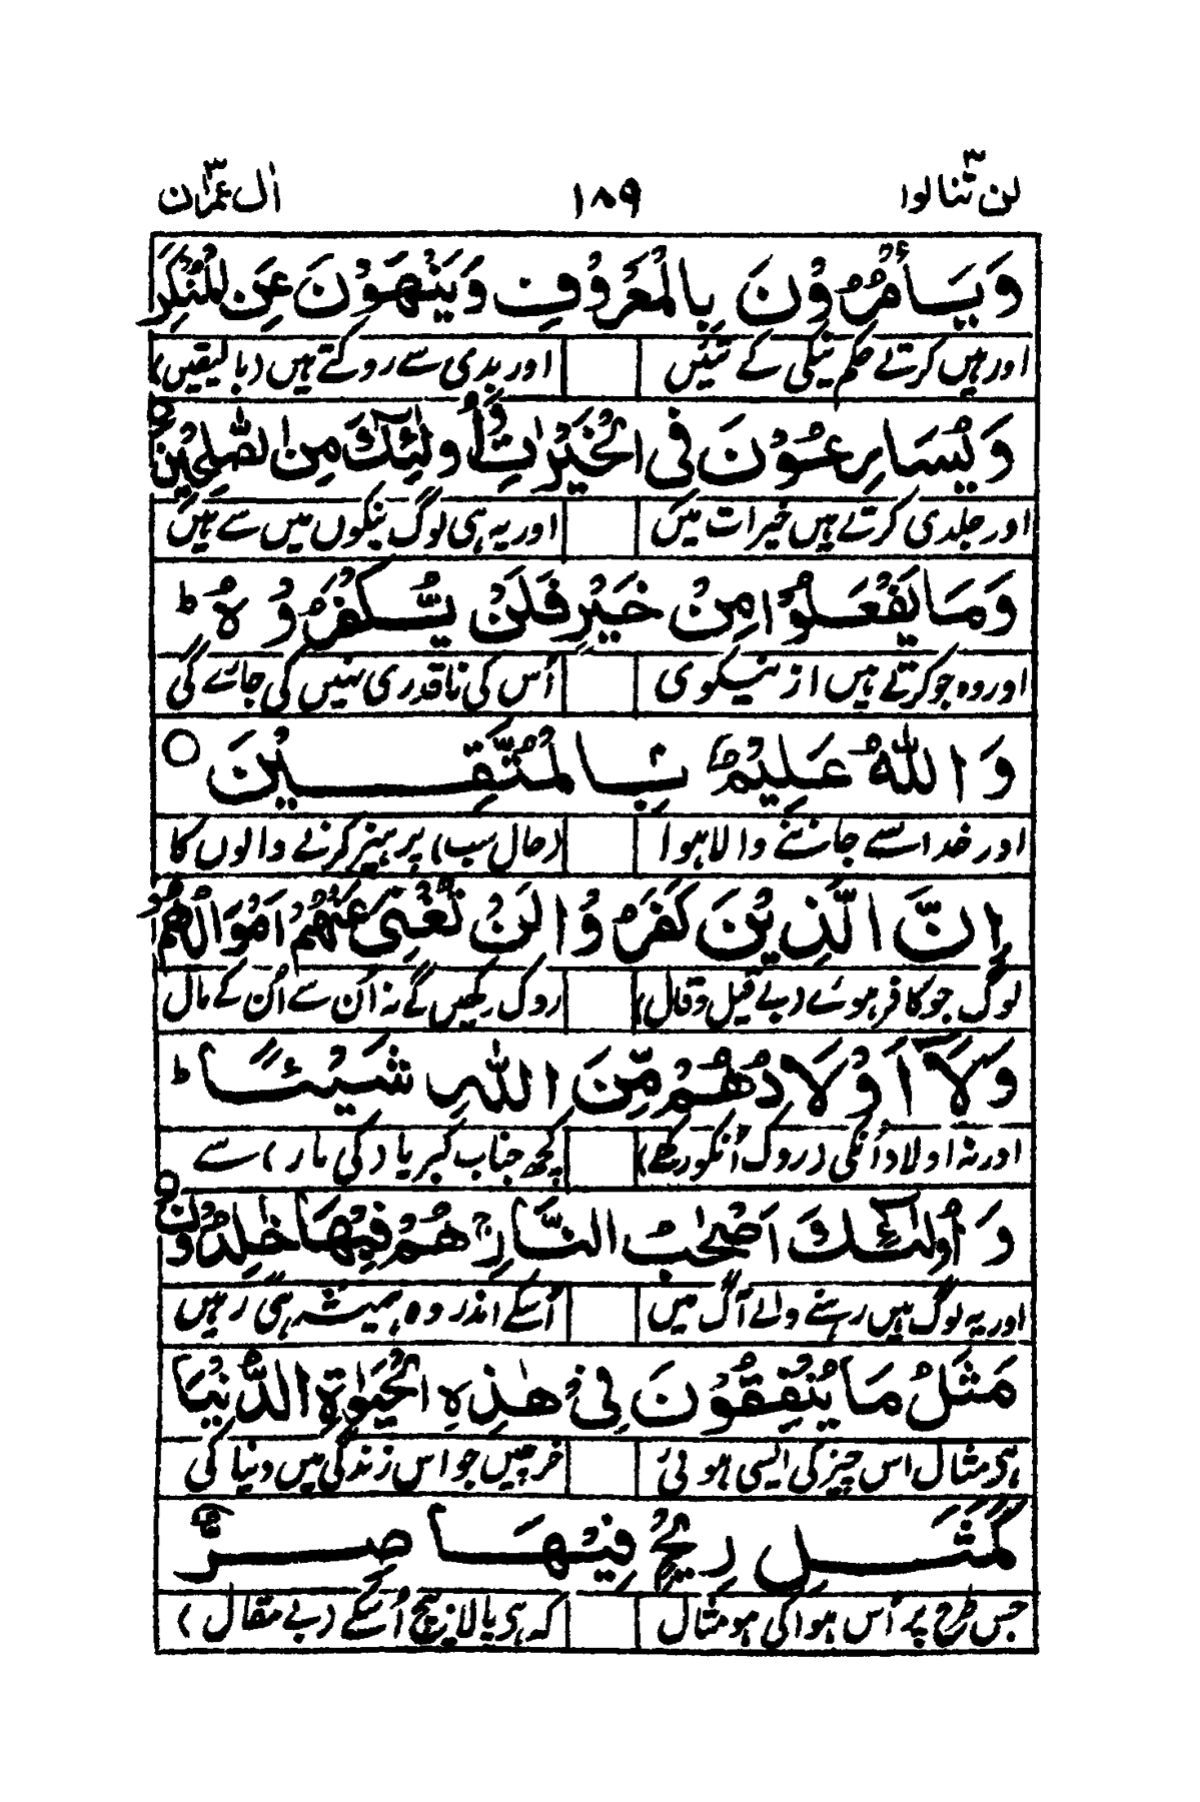 لن تنالوا ۳ ۱۸۹ اٰل عمرٰن ۳
وَيَأۡمُرُوۡنَ بِالۡمَعۡرُوۡفِ وَيَنۡهَوۡنَ عَنِ الۡمُنۡكَرِ
اور ہیں کرتے حکم نیکی کے تئیں اور بدی سے روکتے ہیں (بالیقیں)
وَيُسَارِعُوۡنَ فِى الۡخَيۡرٰتِؕ وَاُولٰٓئِكَ مِنَ الصّٰلِحِيۡنَ ○
اور جلدی کرتے ہیں خیرات میں اور یہ ہی لوگ نیکوں میں سے ہیں
وَمَا يَفۡعَلُوۡا مِنۡ خَيۡرٍ فَلَنۡ يُّكۡفَرُوۡهُ ؕ
اور وہ جو کرتے ہیں از نیکوی اُس کی ناقدری نہیں کی جائے گی
وَاللّٰهُ عَلِيۡمٌۢ بِالۡمُتَّقِيۡنَ ○
اور خدا سے جاننے والا ہوا (حال سب) پرہیز کرنے والوں کا
اِنَّ الَّذِيۡنَ كَفَرُوۡا لَنۡ تُغۡنِىَ عَنۡهُمۡ اَمۡوَالُهُمۡ
لوگ جو کافر ہوئے (بے قیل وقال) روک رکھیں گے نہ اُن سے اُن کے مال
وَلَاۤ اَوۡلَادُهُمۡ مِّنَ اللّٰهِ شَيۡـئًا ؕ
اور نہ اولاد اُنکی (روک اُنکو رکھے) کچھ جناب کبریا (کی مار) سے
وَاُولٰٓئِكَ اَصۡحٰبُ النَّارِ ۚ هُمۡ فِيۡهَا خٰلِدُوۡنَ ○
اور یہ لوگ ہیں رہنے والے آگ میں اُسکے اندر وہ ہمیشہ ہی رہیں
مَثَلُ مَا يُنۡفِقُوۡنَ فِىۡ هٰذِهِ الۡحَيٰوةِ الدُّنۡيَا
ہے مثال اس چیز کی ایسی ہوئی خرچیں جو اس زندگی میں دنیا کی
كَمَثَلِ رِيۡحٍ فِيۡهَا صِرٌّ
جس طرح پر اُس ہوا کی ہو مثال کہ ہے پالا بیچ اُسکے (بے مقال)